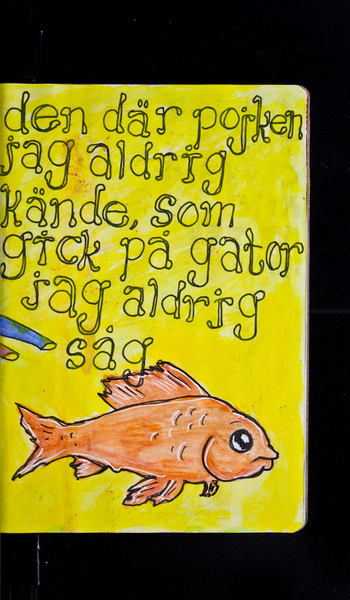 den där pojken
jag aldrig
kände, som
gick på gator
jag aldrig
såg